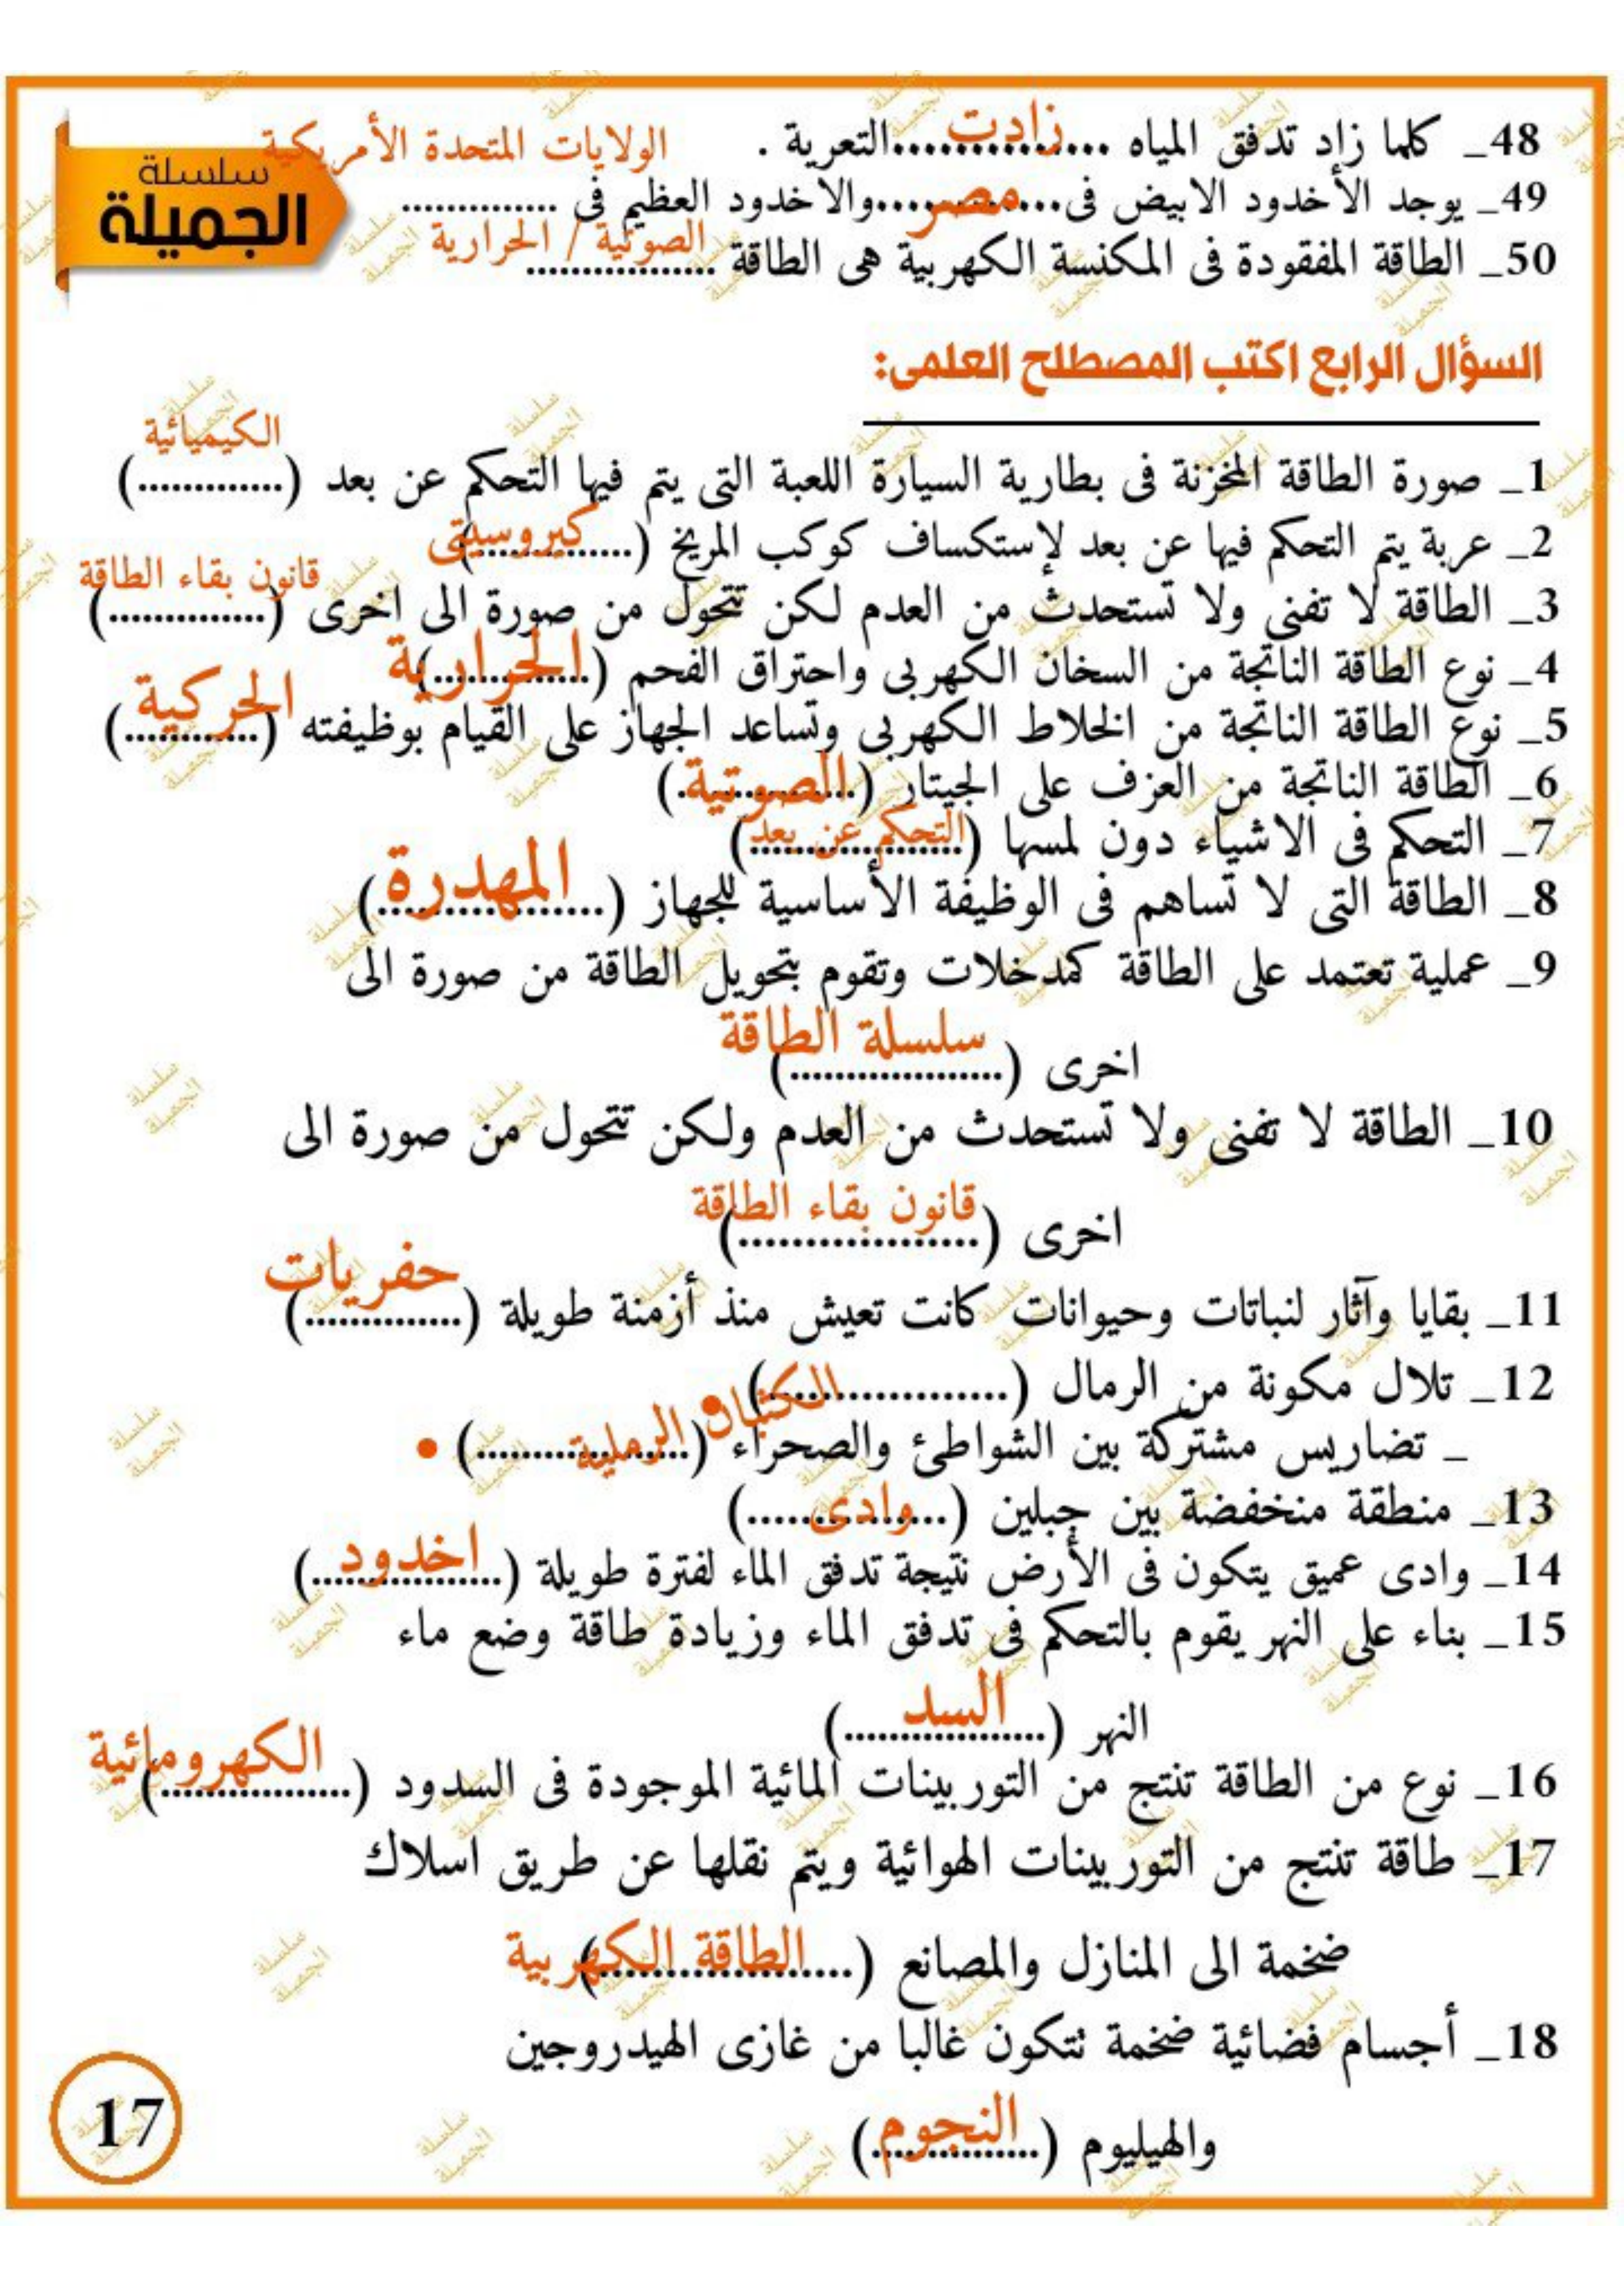 سلسلة
الجميلة
48_ كلما زاد تدفق المياه ......زادت......التعرية .
49_ يوجد الأخدود الابيض فى......مصر......والاخدود العظيم فى ..............الولايات المتحدة الأمريكية
50_ الطاقة المفقودة فى المكنسة الكهربية هى الطاقة ........الصوتية / الحرارية
السؤال الرابع اكتب المصطلح العلمى:
1_ صورة الطاقة المخزنة فى بطارية السيارة اللعبة التى يتم فيها التحكم عن بعد (الكيميائية)
2_ عربة يتم التحكم فيها عن بعد لإستكساف كوكب المريخ (كيروسيتى)
3_ الطاقة لا تفنى ولا تستحدث من العدم لكن تتحول من صورة الى اخرى (قانون بقاء الطاقة)
4_ نوع الطاقة الناتجة من السخان الكهربى واحتراق الفحم (الحرارية)
5_ نوع الطاقة الناتجة من الخلاط الكهربى وتساعد الجهاز على القيام بوظيفته (الحركية)
6_ الطاقة الناتجة من العزف على الجيتار (الصوتية)
7_ التحكم فى الاشياء دون لمسها (التحكم عن بعد)
8_ الطاقة التى لا تساهم فى الوظيفة الأساسية للجهاز (المهدرة)
9_ عملية تعتمد على الطاقة كمدخلات وتقوم بتحويل الطاقة من صورة الى
اخرى (سلسلة الطاقة)
10_ الطاقة لا تفنى ولا تستحدث من العدم ولكن تتحول من صورة الى
اخرى (قانون بقاء الطاقة)
11_ بقايا وآثار لنباتات وحيوانات كانت تعيش منذ أزمنة طويلة (حفريات)
12_ تلال مكونة من الرمال (...................)
_ تضاريس مشتركة بين الشواطئ والصحراء (...................)
• الكثبان الرملية •
13_ منطقة منخفضة بين جبلين (وادى)
14_ وادى عميق يتكون فى الأرض نتيجة تدفق الماء لفترة طويلة (اخدود)
15_ بناء على النهر يقوم بالتحكم فى تدفق الماء وزيادة طاقة وضع ماء
النهر (السد)
16_ نوع من الطاقة تنتج من التوربينات المائية الموجودة فى السدود (الكهرومائية)
17_ طاقة تنتج من التوربينات الهوائية ويتم نقلها عن طريق اسلاك
ضخمة الى المنازل والمصانع (الطاقة الكهربية)
18_ أجسام فضائية ضخمة تتكون غالبا من غازى الهيدروجين
والهيليوم (النجوم)
17